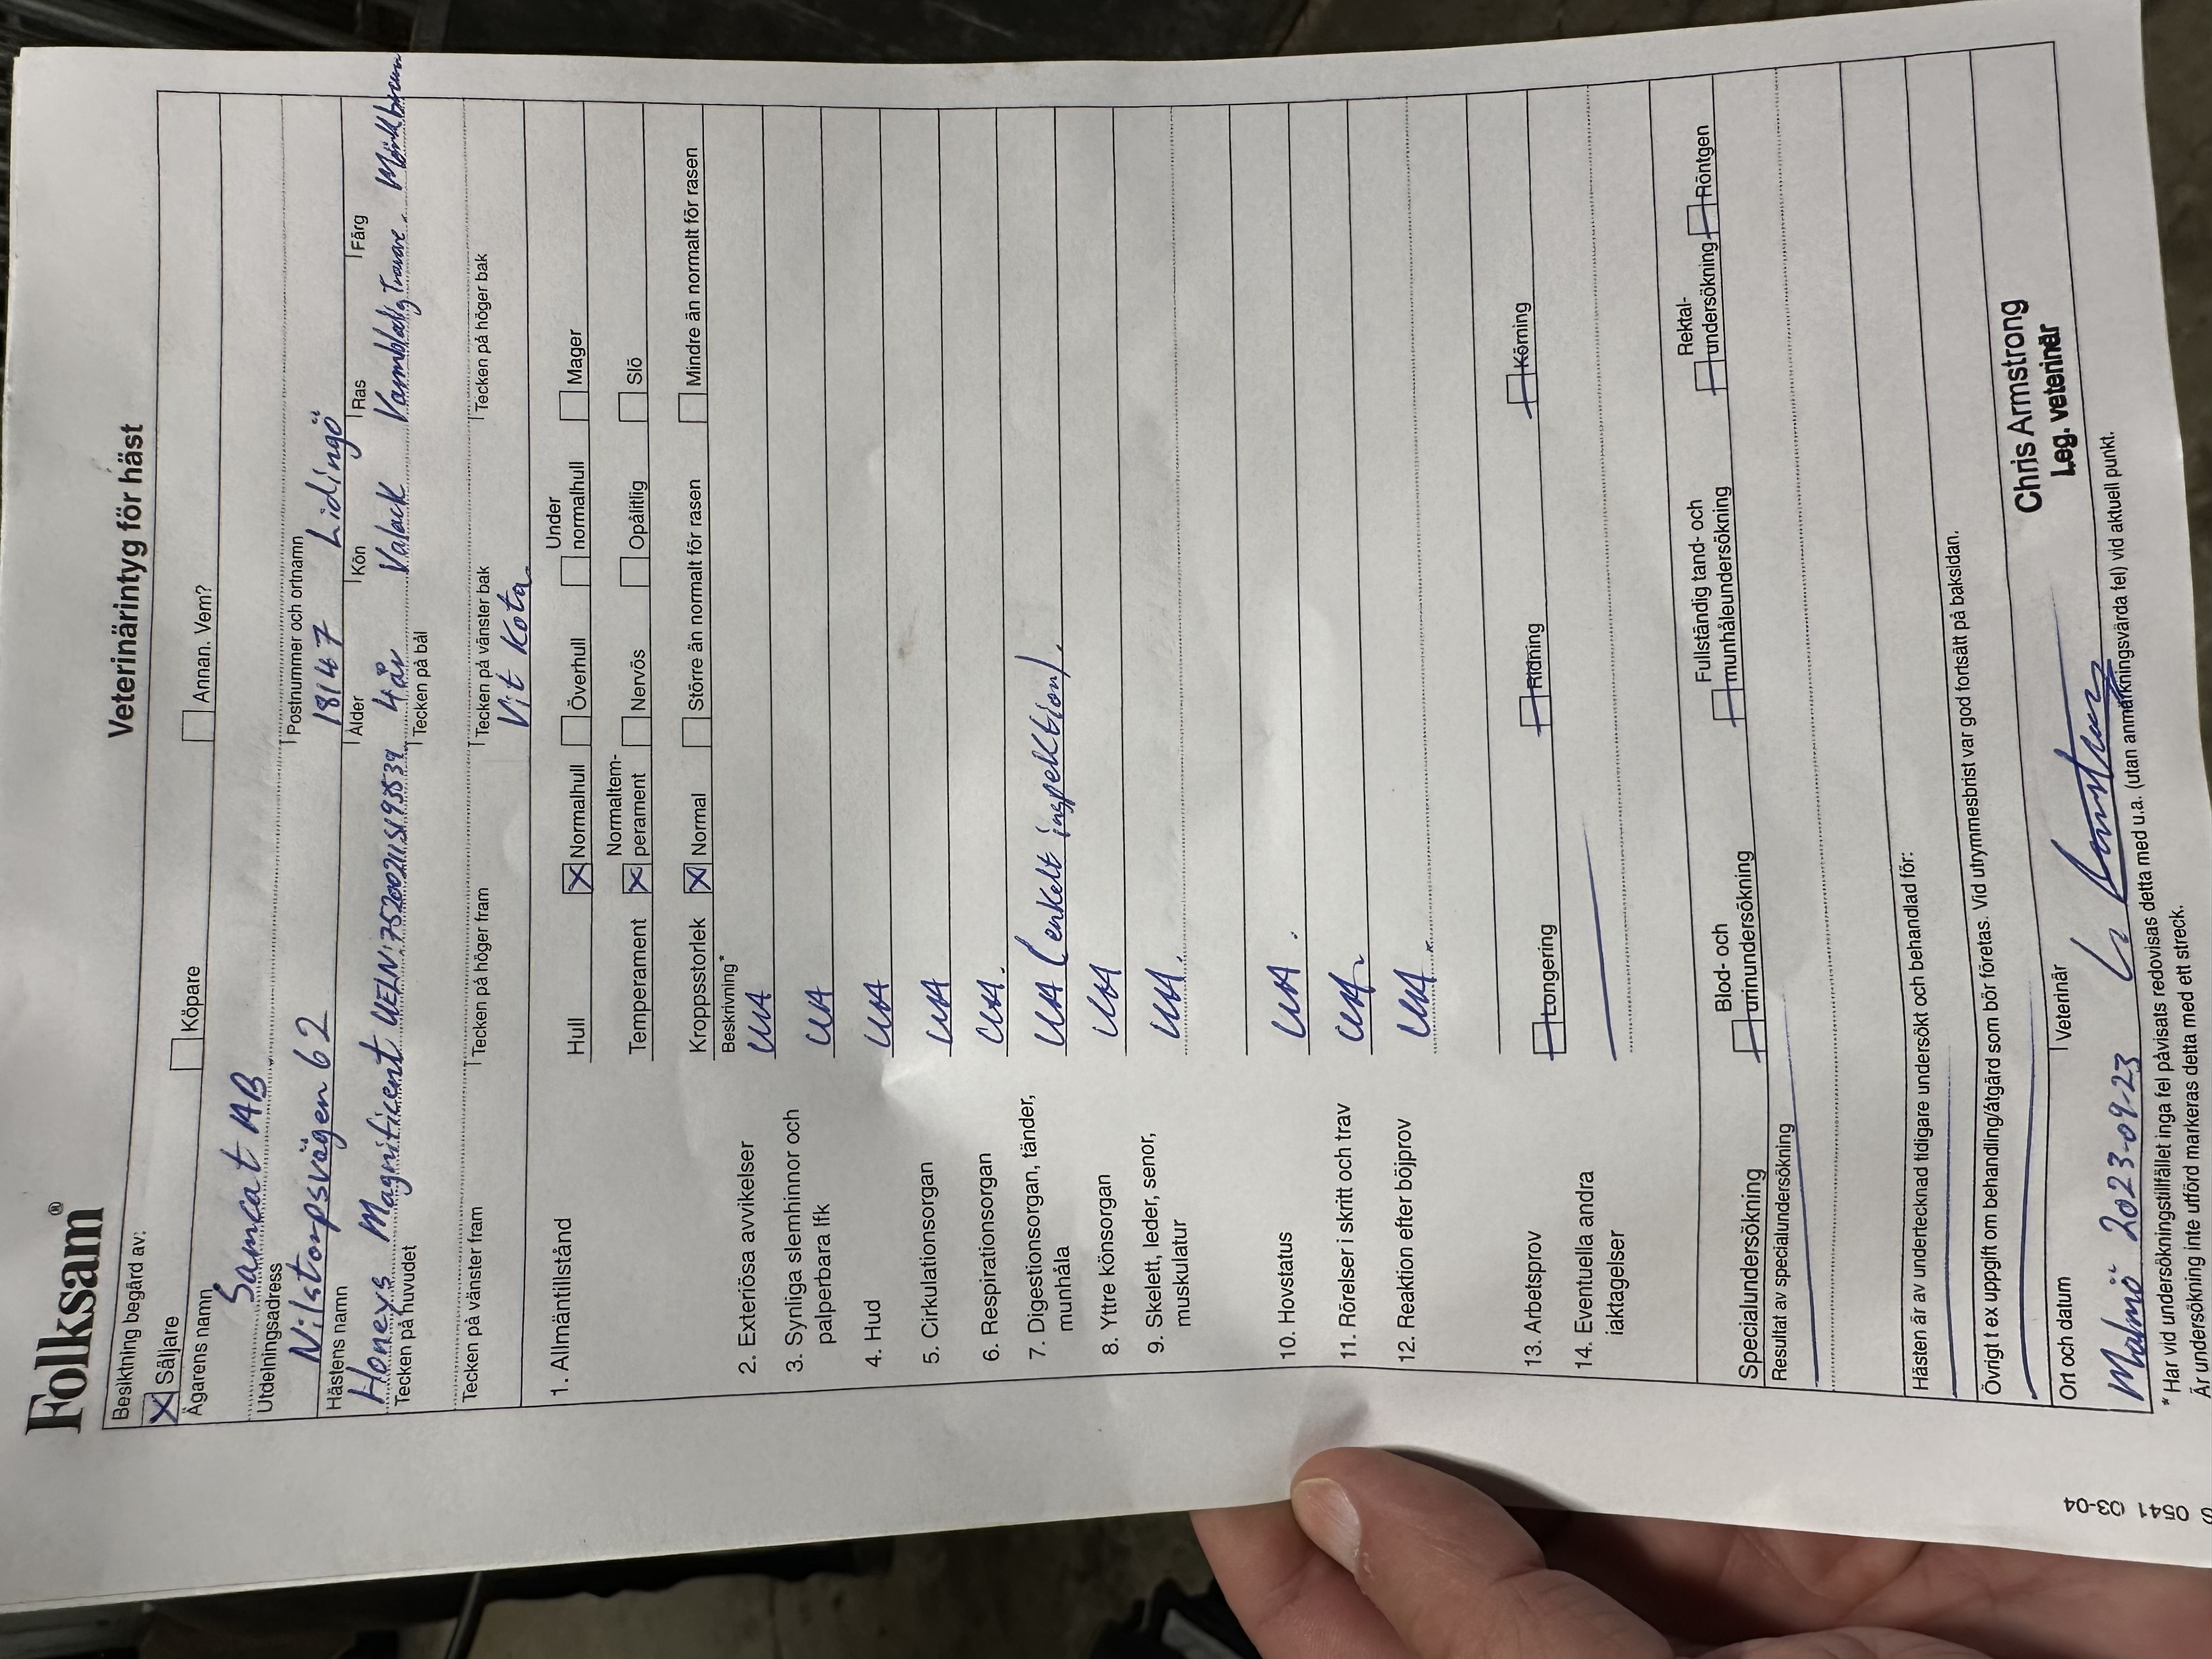 Folksam®
Veterinärintyg för häst
Besiktning begärd av:
X Säljare Köpare Annan. Vem?
Ägarens namn
Samcat AB
Utdelningsadress Postnummer och ortnamn
Nilstorpsvägen 62 18147 Lidingö
Hästens namn Ålder Kön Ras Färg
Honeys Magnificent 4 år Valack Varmblodig Travare Mörkbrun
Tecken på huvudet Tecken på bål
Tecken på vänster fram Tecken på höger fram Tecken på vänster bak Tecken på höger bak
Vit Kota
1. Allmäntillstånd Hull X Normalhull Överhull Under normalhull Mager
Temperament X Normaltem-
perament Nervös Opålitlig Slö
Kroppsstorlek X Normal Större än normalt för rasen Mindre än normalt för rasen
Beskrivning*
2. Exteriösa avvikelser UA
3. Synliga slemhinnor och
palperbara lfk UA
4. Hud UA
5. Cirkulationsorgan UA
6. Respirationsorgan UA.
7. Digestionsorgan, tänder,
munhåla UA (enkelt inspektion).
8. Yttre könsorgan UA
9. Skelett, leder, senor,
muskulatur UA.
10. Hovstatus UA.
11. Rörelser i skritt och trav UA
12. Reaktion efter böjprov UA
13. Arbetsprov Longering Ridning Körning
14. Eventuella andra
iakttagelser
Specialundersökning Blod- och
urinundersökning Fullständig tand- och
munhåleundersökning Rektal-
undersökning Röntgen
Resultat av specialundersökning
Hästen är av undertecknad tidigare undersökt och behandlad för:
Övrigt t ex uppgift om behandling/åtgärd som bör företas. Vid utrymmesbrist var god fortsätt på baksidan.
Ort och datum Veterinär
Malmö 2023-09-23
Chris Armstrong
Leg. veterinär
* Har vid undersökningstillfället inga fel påvisats redovisas detta med u.a. (utan anmärkningsvärda fel) vid aktuell punkt.
Är undersökning inte utförd markeras detta med ett streck.
0541 03-04